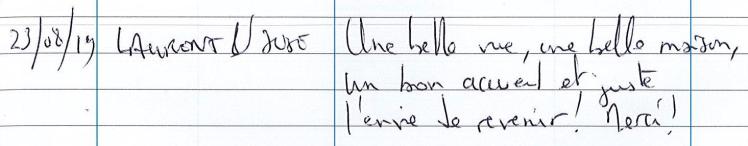 23/08/19 LAURENT & JOSE Une belle vue, une belle maison,
un bon accueil et juste
l'envie de revenir! Merci!